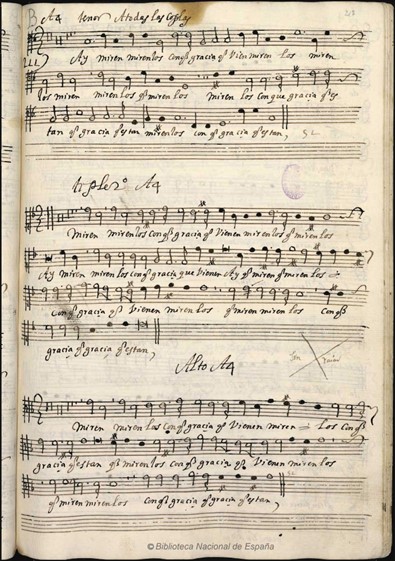 A4 tenor A todas las Coplas
Ay miren mirenlos con q̃ gracia q̃ vien miren los miren
los miren mirenlos q̃ mirenlos mirenlos con que gracia q̃ es
tan q̃ gracia q̃ estan mirenlos con q̃ gracia q̃ estan,
Tiple 2º A4
Miren mirenlos con q̃ gracia q̃ vienen mirenlos q̃ mirenlos
Ay miren mirenlos con q̃ gracia que vienen Ay q̃ miren q̃ mirenlos
con q̃ gracia q̃ vienen mirenlos q̃ mirenlos con q̃
gracia q̃ gracia q̃ estan,
Alto A4
Miren miren los con q̃ gracia q̃ vienen miren los con q̃
gracia q̃ estan q̃ mirenlos con q̃ gracia q̃ vienen mirenlos
q̃ miren mirenlos con q̃ gracia q̃ gracia q̃ estan,
© Biblioteca Nacional de España